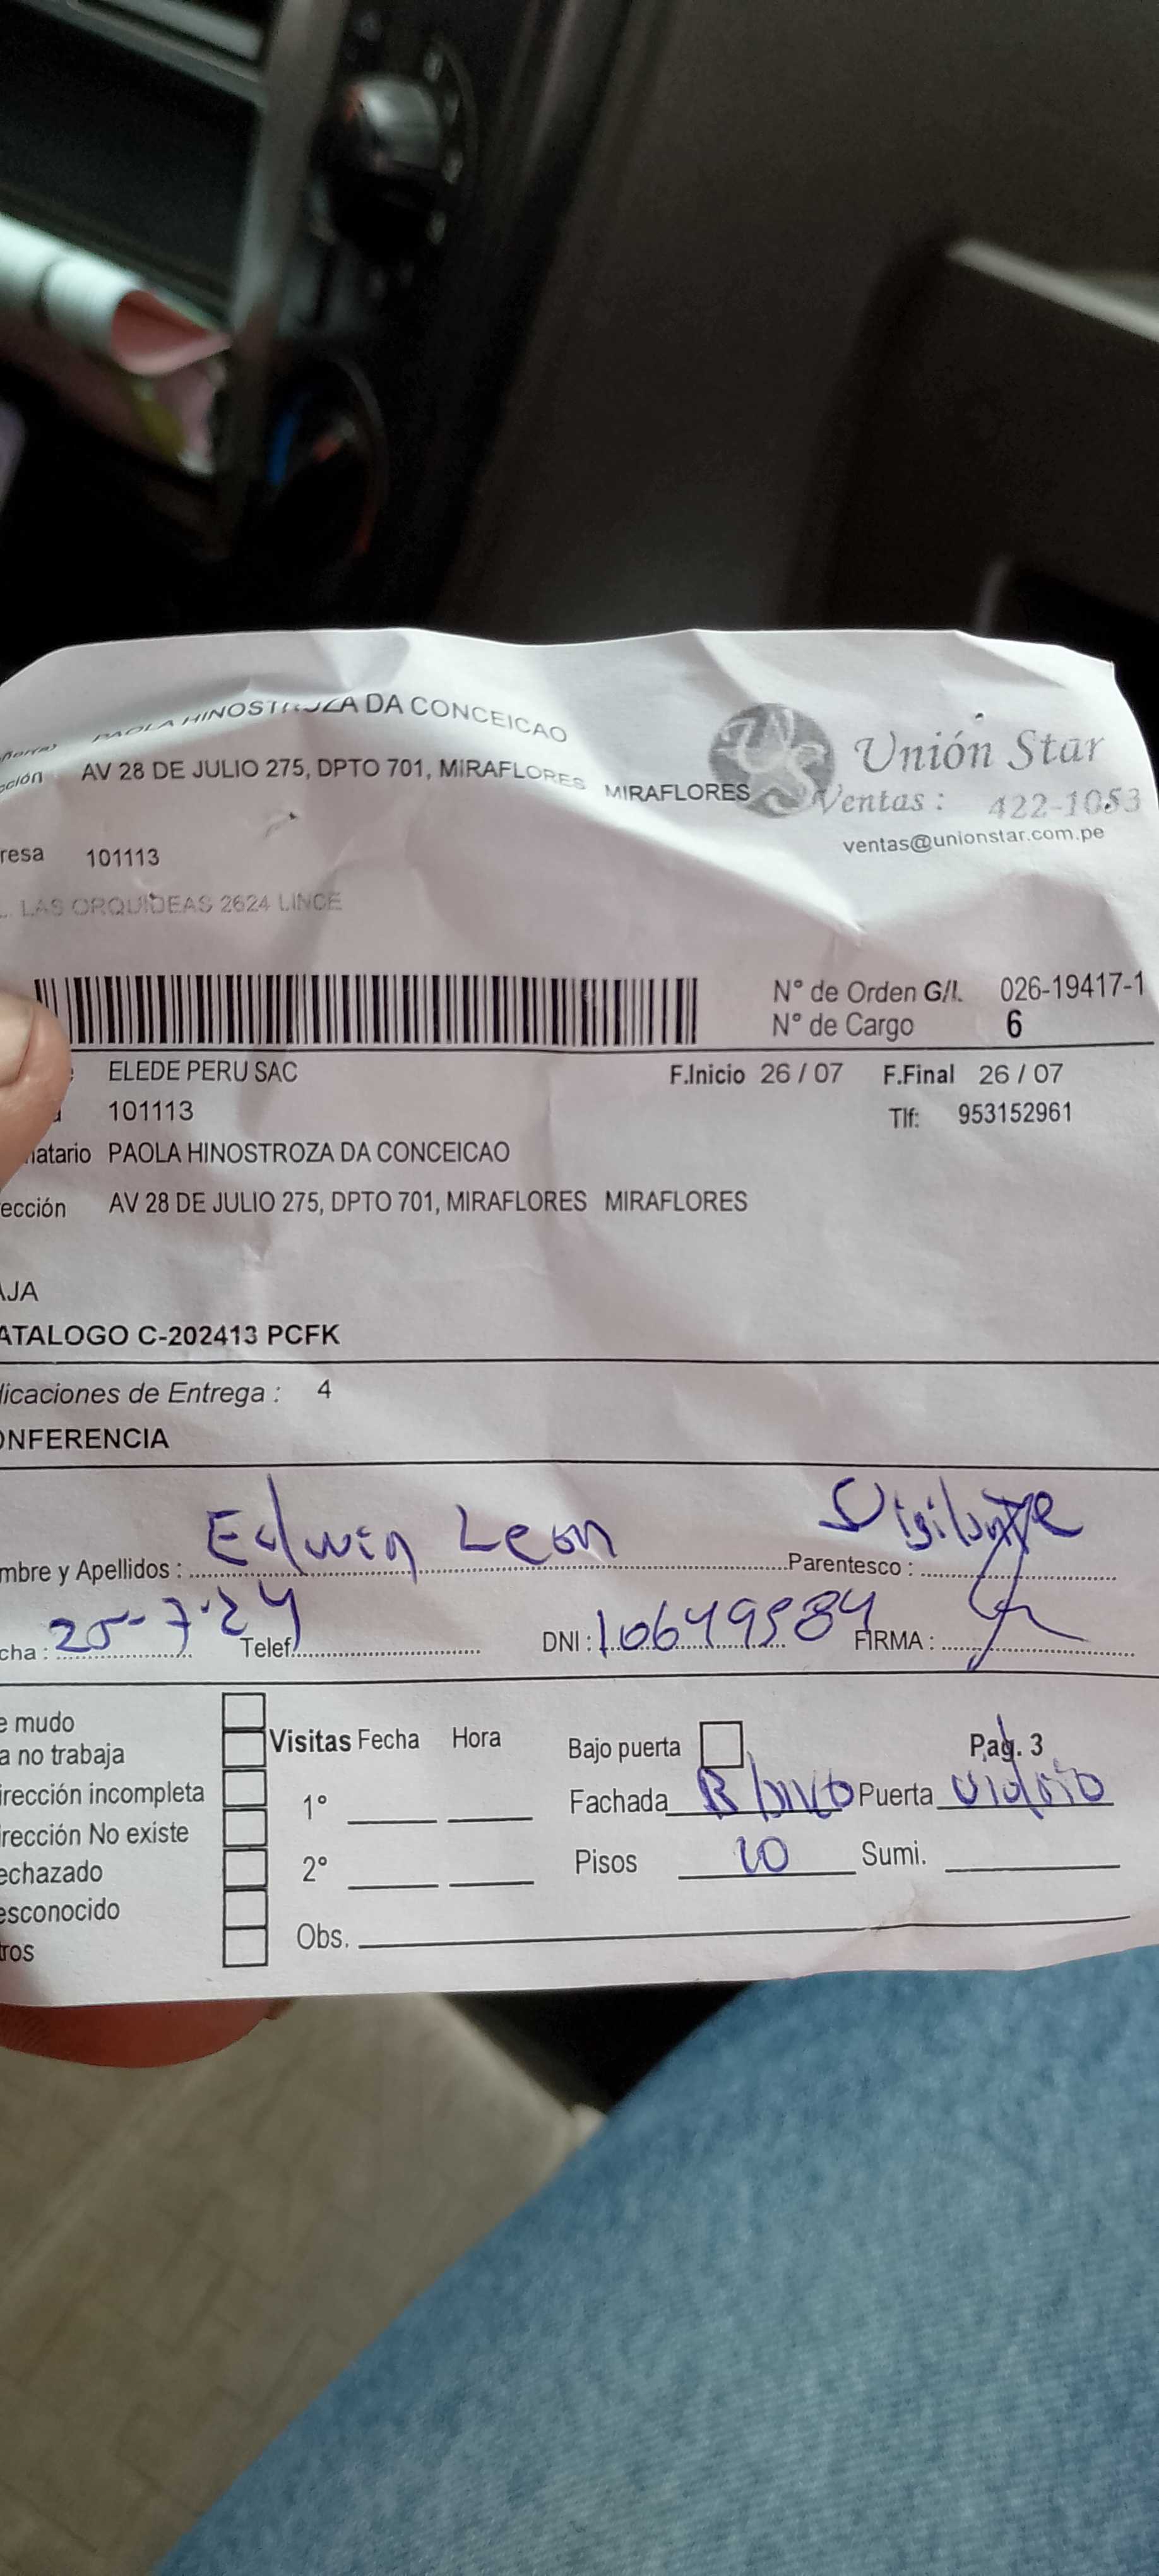 PAOLA HINOSTROZA DA CONCEICAO
cción AV 28 DE JULIO 275, DPTO 701, MIRAFLORES MIRAFLORES
Unión Star
Ventas : 422-1053
ventas@unionstar.com.pe
resa 101113
. LAS ORQUIDEAS 2624 LINCE
N° de Orden G/I. 026-19417-1
N° de Cargo 6
ELEDE PERU SAC F.Inicio 26 / 07 F.Final 26 / 07
a 101113 Tlf: 953152961
natario PAOLA HINOSTROZA DA CONCEICAO
ección AV 28 DE JULIO 275, DPTO 701, MIRAFLORES MIRAFLORES
AJA
ATALOGO C-202413 PCFK
dicaciones de Entrega : 4
ONFERENCIA
mbre y Apellidos : Edwin Leon Parentesco : Vigilante
cha : 25-7-24 Telef. DNI : 10649984 FIRMA :
e mudo
a no trabaja
irección incompleta
irección No existe
echazado
esconocido
tros
Visitas Fecha Hora
1°
2°
Obs.
Bajo puerta Pag. 3
Fachada Blanco Puerta vidrio
Pisos 10 Sumi.